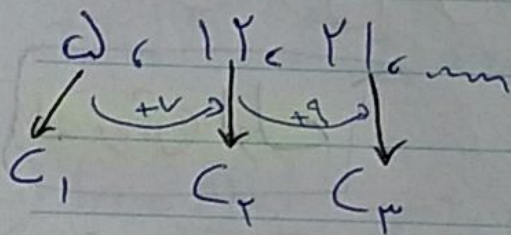 ۵ ، ۱۲ ، ۲۱ ، ...
+۷ +۹
C۱ C۲ C۳